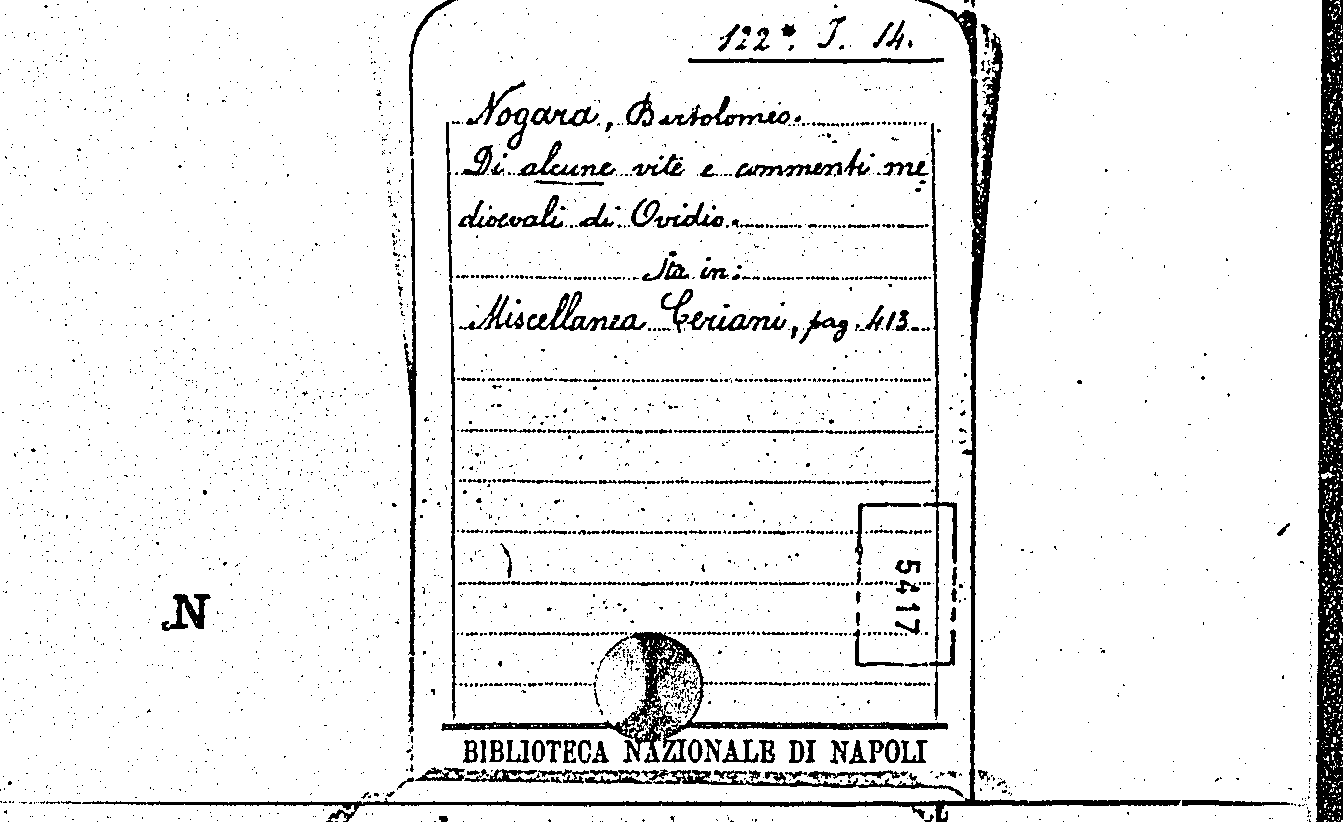 122*. J. 14.
Nogara, Bartolomeo.
Di alcune vite e commenti me
dioevali di Ovidio.
Sta in:
Miscellanea Ceriani, pag. 413.
5417
N.
BIBLIOTECA NAZIONALE DI NAPOLI